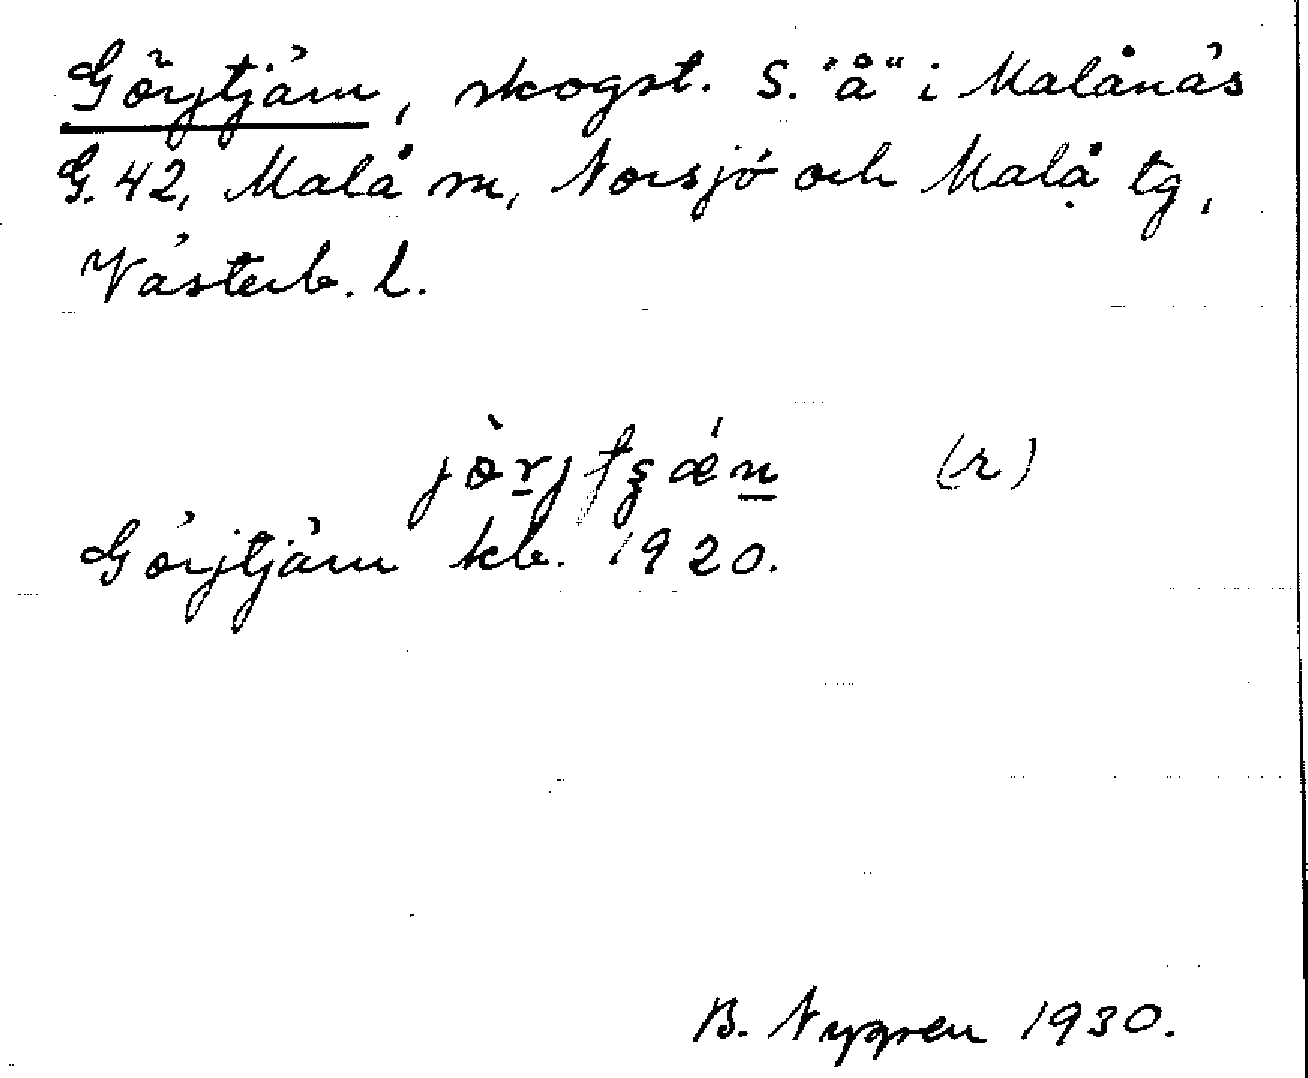 Görjtjärn, skogst. S. "å" i Malånäs
G. 42, Malå sn, Norsjö och Malå tg,
Västerb. l.
(r)
Görjtjärn kb. 1920.
B. Nygren 1930.